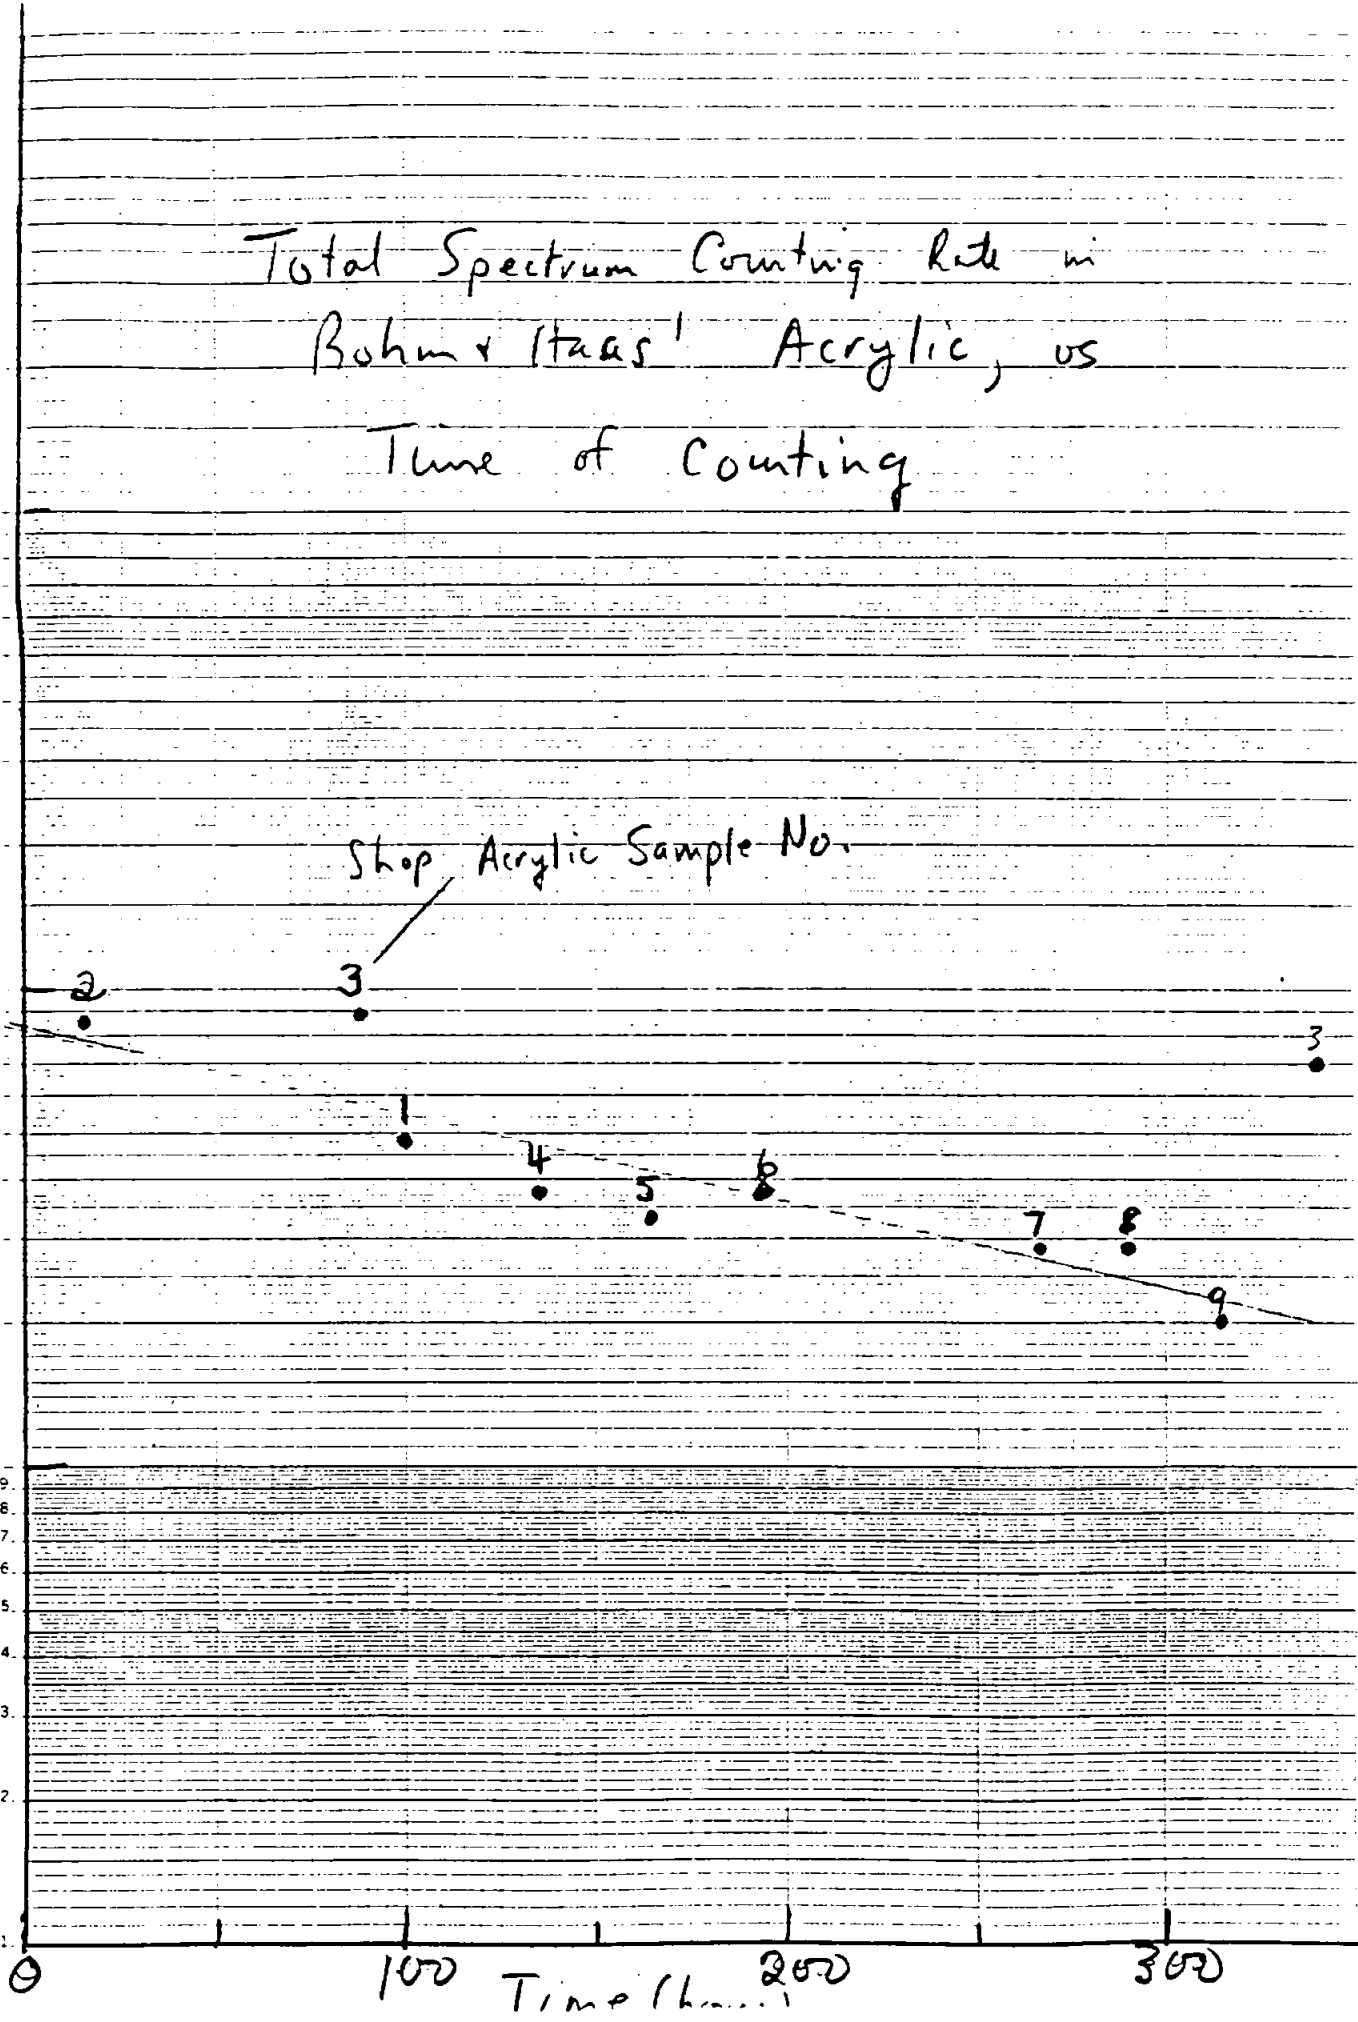 Total Spectrum Counting Rate in
Rohm & Haas' Acrylic, vs
Time of Counting
Shop Acrylic Sample No.
2
3
3
1
4
5
6
7
8
9
9.
8.
7.
6.
5.
4.
3.
2.
1.
0 100 200 300
Time